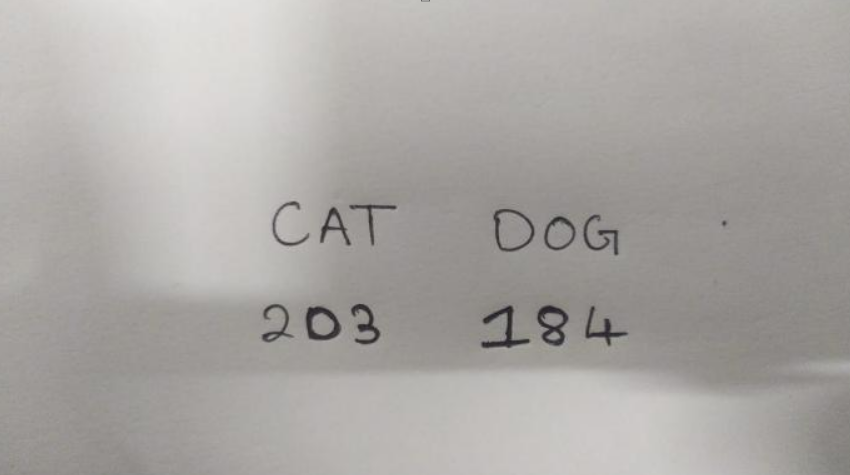 CAT DOG
203 184